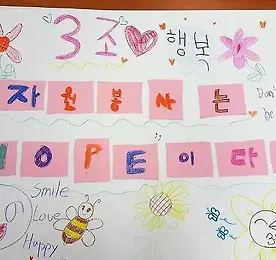 3조 행복
자원봉사는 Don't
be
HOPE이다
Smile
Love
Happy